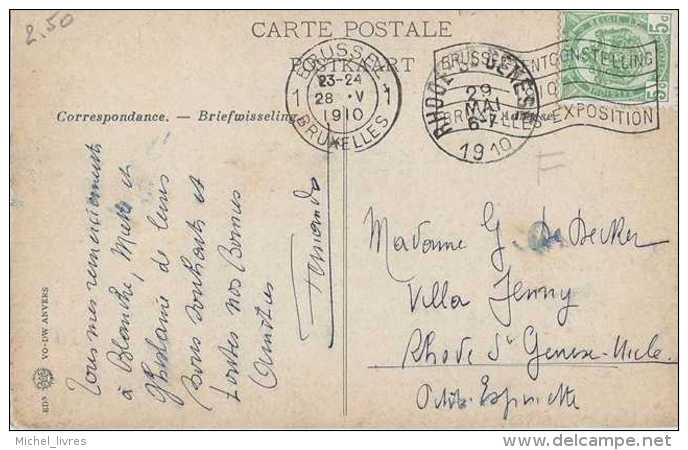 2.50
CARTE POSTALE
POSTKAART
BRUSSEL 1
BRUXELLES
23-24
28 . V
1910
1 1
BRUSSEL TENTOONSTELLING
BRUXELLES-EXPOSITION
RHODE-ST-GENESE
29
MAI
6-7
1910
5c 5c
Correspondance. — Briefwisseling
F
Tous mes remerciements
à Blanche, Metz et
Ghislaine de leurs
Bons souhaits et
toutes nos Bonnes
Amitiés
Fernando
Madame G. De Decker
Villa Jenny
Rhode St Genese-Uccle
Petite Espinette
EDN VO-DW ANVERS
Michel_livres
www.delcampe.net